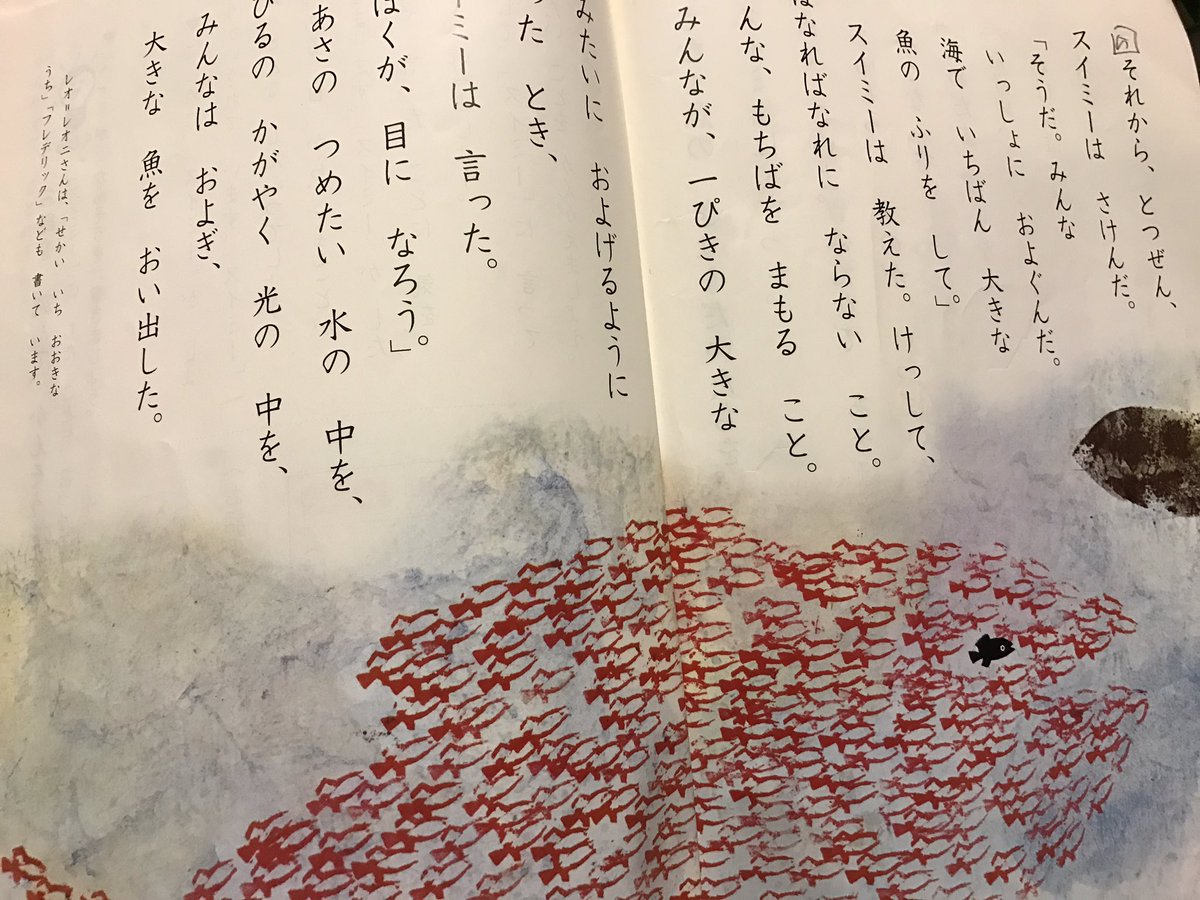 の それから、とつぜん、
スイミーは さけんだ。
「そうだ。みんな
いっしょに およぐんだ。
海で いちばん 大きな
魚の ふりを して。」
スイミーは 教えた。けっして、
はなればなれに ならない こと。
んな、もちばを まもる こと。
みんなが、一ぴきの 大きな
みたいに およげるように
った とき、
ミーは 言った。
ぼくが、目に なろう。」
あさの つめたい 水の 中を、
ひるの かがやく 光の 中を、
みんなは およぎ、
大きな 魚を おい出した。
レオ=レオニさんは、「せかい いち おおきな
うち」「フレデリック」なども 書いて います。